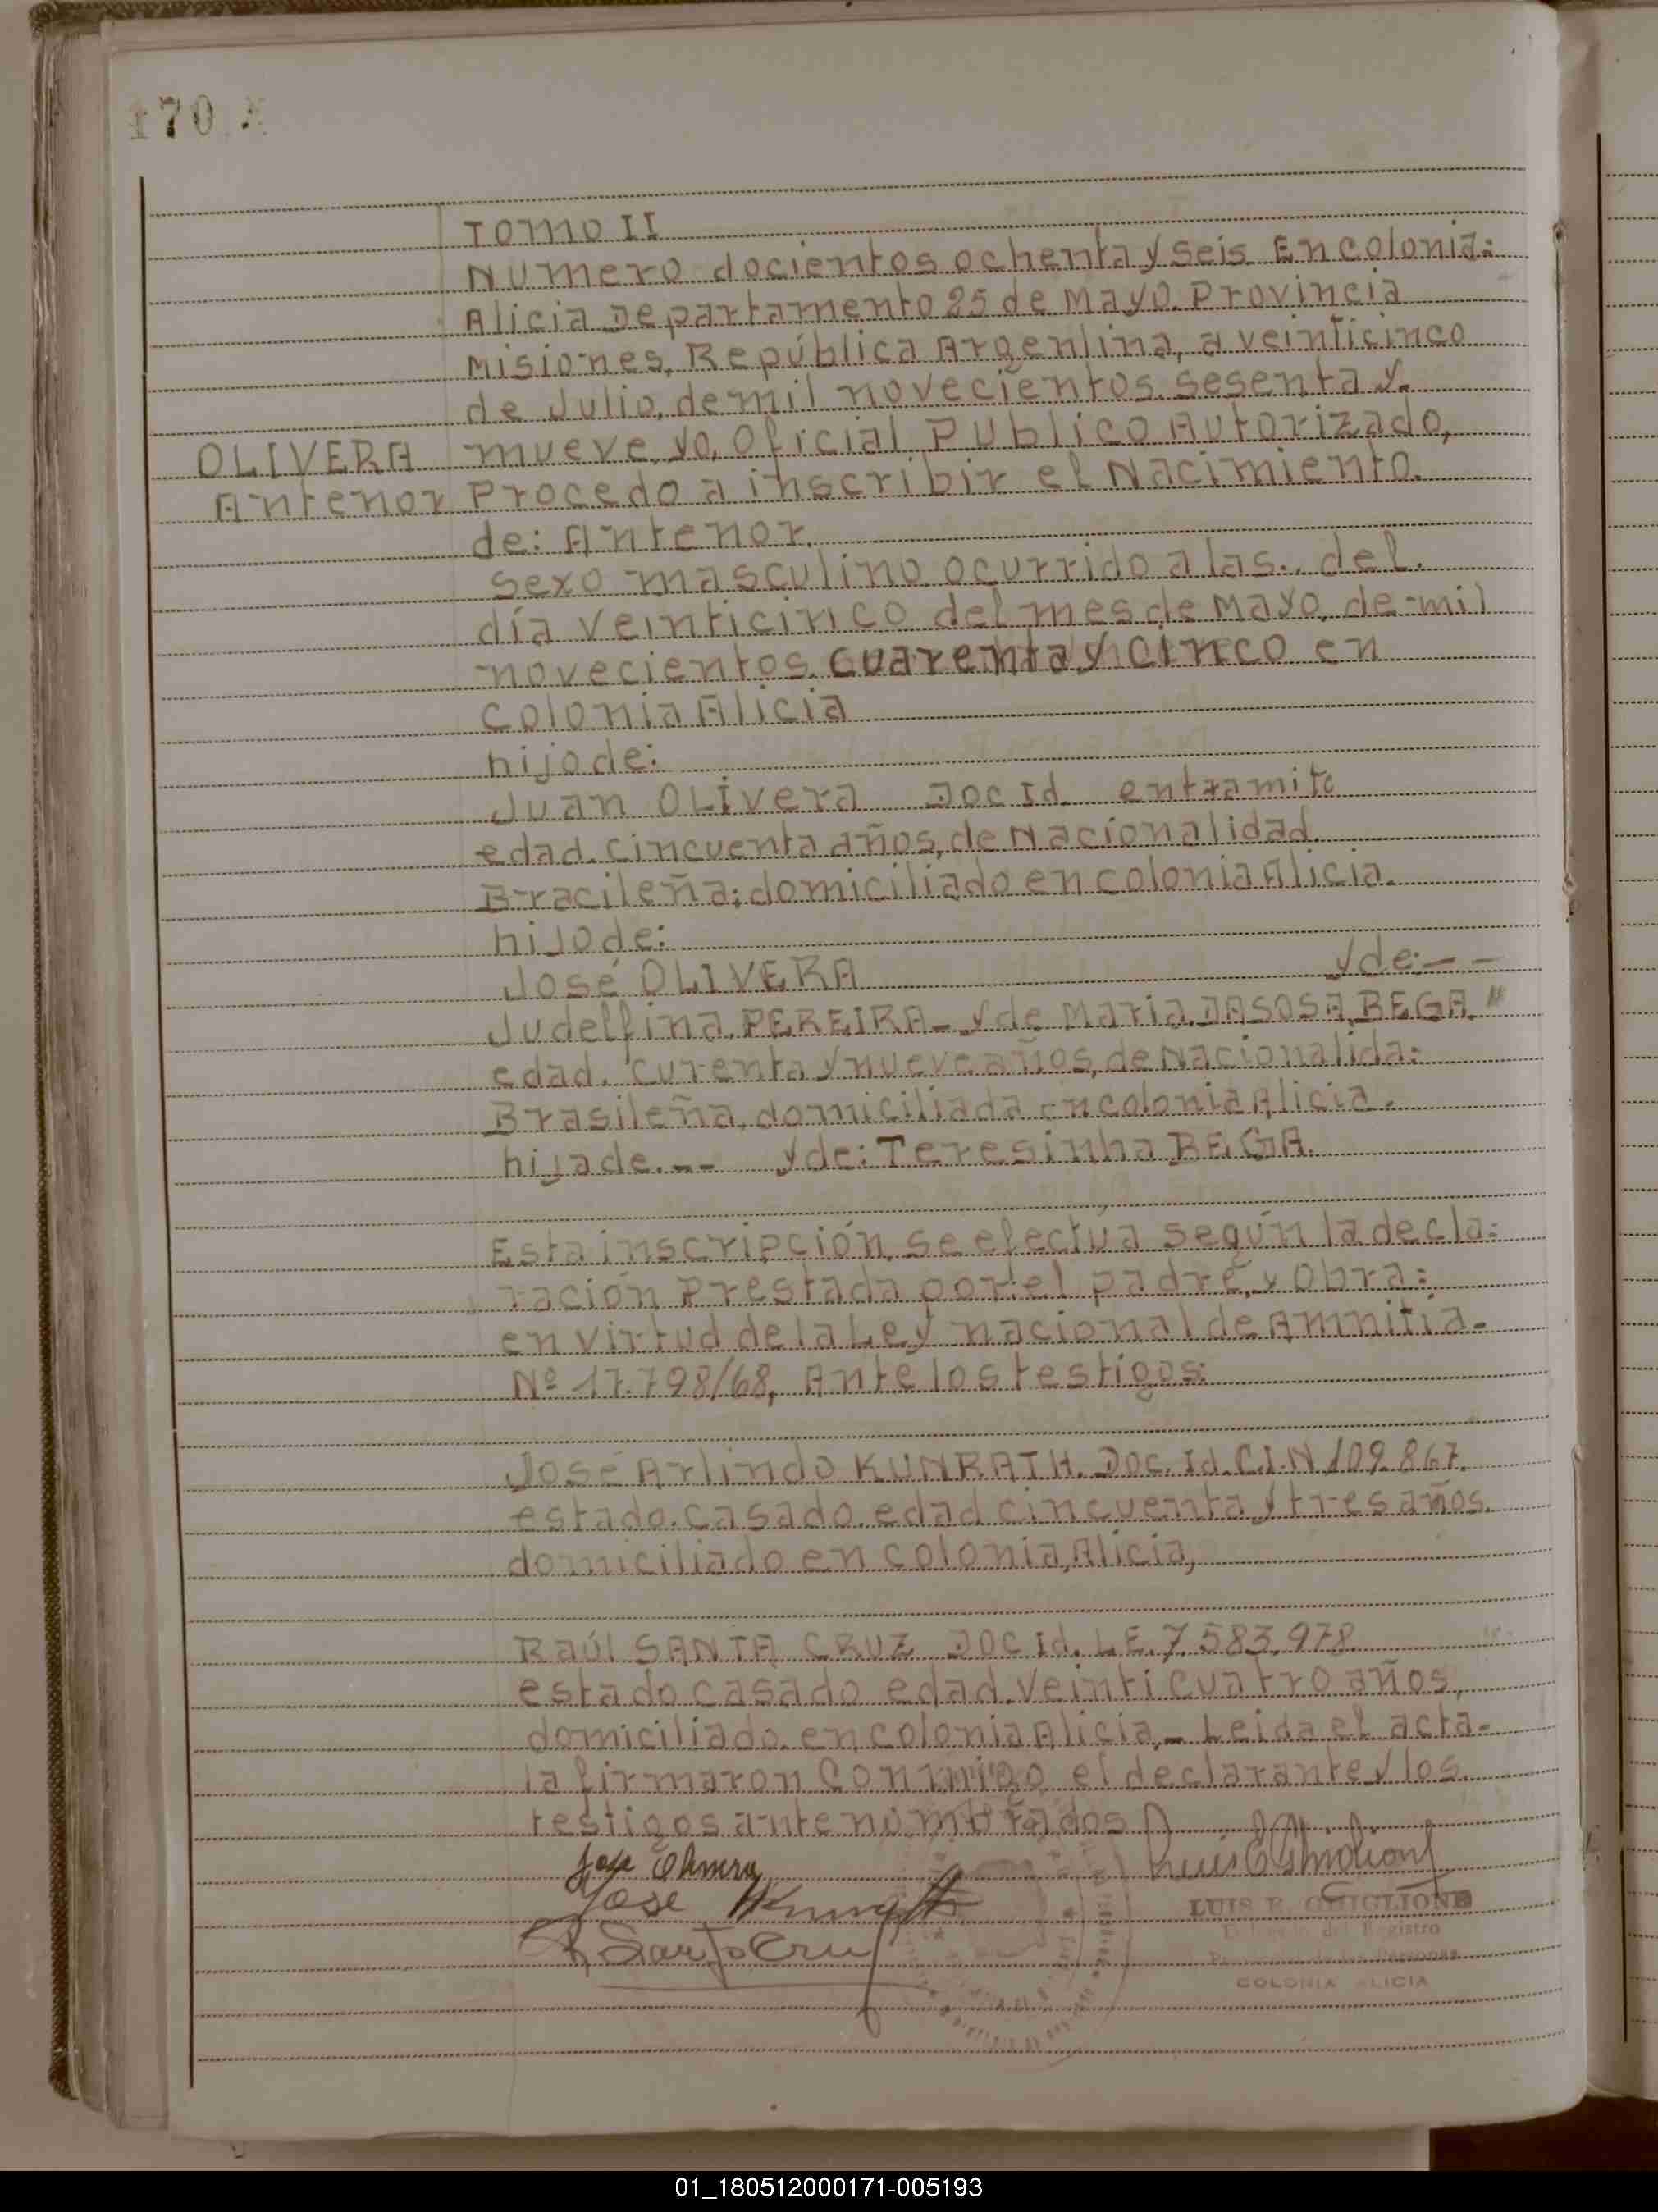 170
TOMO II
Numero docientos ochenta y seis En colonia:
Alicia Departamento 25 de Mayo. Provincia
Misiones, República Argentina, a veinticinco
de Julio, de mil novecientos sesenta y
OLIVERA nueve, yo, Oficial Publico Autorizado,
Antenor Procedo a inscribir el Nacimiento.
de: Antenor.
sexo masculino ocurrido a las.. del.
día veinticinco del mes de Mayo, de mil
novecientos. cuarenta y cinco en
colonia Alicia
hijo de:
Juan OLivera Doc Id. en tramite
edad. cincuenta años, de Nacionalidad.
Bracileña: domiciliado en colonia Alicia.
hijo de:
José OLIVERA y de: — —
Judelfina, PEREIRA - y de Maria, DASOSA, BEGA "
edad. curenta y nueve años, de Nacionalida:
Brasileña, domiciliada en colonia Alicia.
hija de. -- y de: Teresinha BEGA.
Esta inscripción, se efectúa según la decla:
ración Prestada por el padre, y Obra:
en virtud de la Ley nacional de Amnitia-
Nº 17.798/68, Ante los testigos:
José Arlindo KUNRATH. Doc. Id. C.I. N 109.867.
estado. casado. edad cincuenta y tres años.
domiciliado en colonia, Alicia,
Raúl SANTA CRUZ Doc Id. L.E. 7.583.978.
estado casado edad. veinti cuatro años,
domiciliado. en colonia Alicia,- Leida el acta-
la firmaron Conmigo el declarante y los.
testigos ante nombrados
Jose Olivera
Jose
R Santa Cruz
LUIS E. GHIGLIONE
Delegado del Registro
Provincial de las Personas
COLONIA ALICIA
01_180512000171-005193